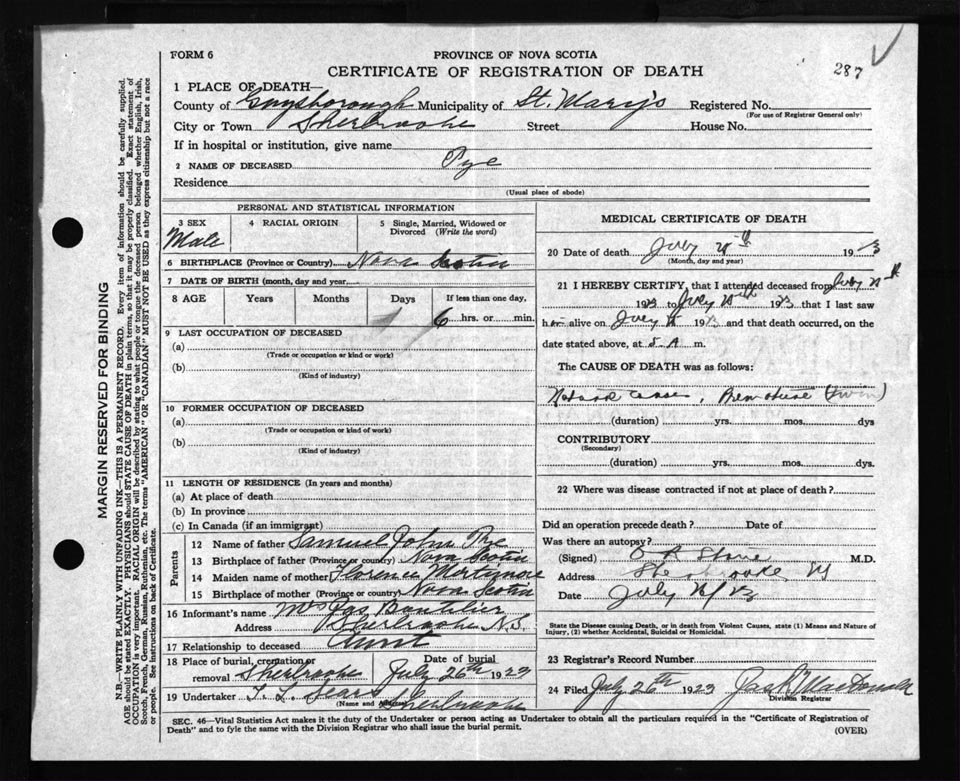 FORM 6
PROVINCE OF NOVA SCOTIA
CERTIFICATE OF REGISTRATION OF DEATH
287
1 PLACE OF DEATH—
County of Guysborough Municipality of St. Mary's Registered No.
(For use of Registrar General only)
City or Town Sherbrooke Street House No.
If in hospital or institution, give name
2 NAME OF DECEASED Pye
Residence
(Usual place of abode)
PERSONAL AND STATISTICAL INFORMATION
3 SEX 4 RACIAL ORIGIN 5 Single, Married, Widowed or Divorced (Write the word)
Male
6 BIRTHPLACE (Province or Country) Nova Scotia
7 DATE OF BIRTH (month, day and year)
8 AGE Years Months Days If less than one day,
6 hrs. or min.
9 LAST OCCUPATION OF DECEASED
(a)
(Trade or occupation or kind or work)
(b)
(Kind of industry)
10 FORMER OCCUPATION OF DECEASED
(a)
(Trade or occupation or kind of work)
(b)
(Kind of industry)
11 LENGTH OF RESIDENCE (In years and months)
(a) At place of death
(b) In province
(c) In Canada (if an immigrant)
Parents
12 Name of father Samuel John Pye
13 Birthplace of father (Province or country) Nova Scotia
14 Maiden name of mother Florence
15 Birthplace of mother (Province or country) Nova Scotia
16 Informant's name Mrs Boutilier
Address Sherbrooke N.S.
17 Relationship to deceased Aunt
18 Place of burial, cremation or removal Sherbrooke
Date of burial
July 26th 1923
19 Undertaker T. L. Sears Sherbrooke
(Name and Address)
MEDICAL CERTIFICATE OF DEATH
20 Date of death July 19
(Month, day and year)
21 I HEREBY CERTIFY, that I attended deceased from July
1923 to July 1923 that I last saw
h alive on July 1923 and that death occurred, on the
date stated above, at 5 A m.
The CAUSE OF DEATH was as follows:
Natural causes, Premature (twin)
(duration) yrs. mos. dys
CONTRIBUTORY
(Secondary)
(duration) yrs. mos. dys.
22 Where was disease contracted if not at place of death?
Did an operation precede death? Date of
Was there an autopsy?
(Signed) M.D.
Address Sherbrooke, NS
Date July
State the Disease causing Death, or in death from Violent Causes, state (1) Means and Nature of
Injury, (2) whether Accidental, Suicidal or Homicidal.
23 Registrar's Record Number
24 Filed July 26th 1923 MacDonald
Division Registrar
SEC. 46—Vital Statistics Act makes it the duty of the Undertaker or person acting as Undertaker to obtain all the particulars required in the "Certificate of Registration of
Death" and to fyle the same with the Division Registrar who shall issue the burial permit. (OVER)
MARGIN RESERVED FOR BINDING
N.B.—WRITE PLAINLY WITH UNFADING INK—THIS IS A PERMANENT RECORD. Every item of information should be carefully supplied.
AGE should be stated EXACTLY. PHYSICIANS should STATE CAUSE OF DEATH in plain terms, so that it may be properly classified. Exact statement of
OCCUPATION is very important. RACIAL ORIGIN will be described by stating to what people or tongue the deceased person belonged whether English, Irish,
Scotch, French, German, Russian, Ruthenian, etc. The terms "AMERICAN" OR "CANADIAN" MUST NOT BE USED as they express citizenship but not a race
or people. See instructions on back of Certificate.